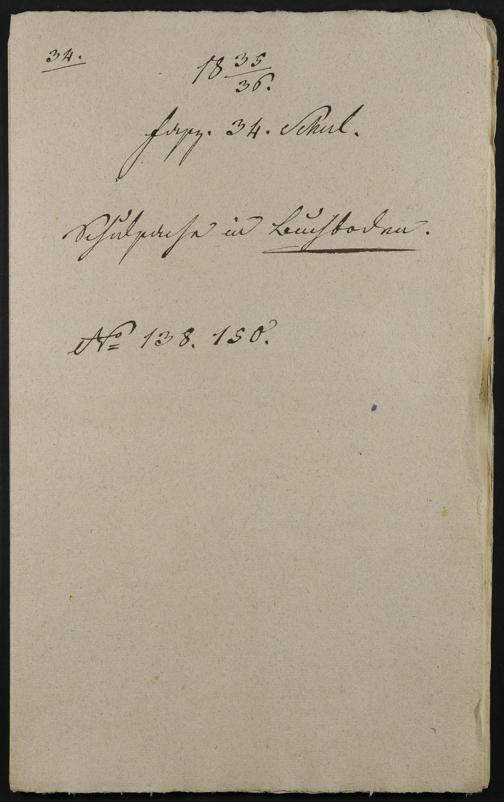 34.
18 35/36.
Fasz. 34. Schul.
Schulsache in Buchboden.
No 138. 150.